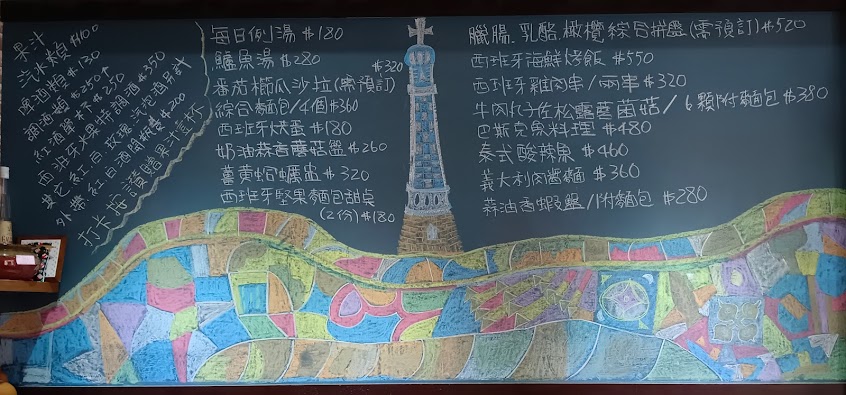 果汁
汽水類 $100
啤酒類 $130
調酒類 $250起
紅酒單杯 $250
西班牙水果特調酒 $350
其它紅白、玫瑰、汽泡酒另計
外帶紅白酒開瓶費 $200
打卡按讚贈果汁壹杯
每日例湯 $180
鱸魚湯 $280
番茄櫛瓜沙拉(需預訂) $320
綜合麵包/4個 $360
西班牙烘蛋 $180
奶油蒜香蘑菇盤 $260
薑黃蛤蠣盅 $320
西班牙堅果麵包甜桌
(2份) $180
臘腸、乳酪、橄欖綜合拼盤(需預訂) $520
西班牙海鮮烤飯 $550
西班牙雞肉串/兩串 $320
牛肉丸子佐松露蘑菌菇/6顆附麵包 $380
巴斯克魚料理 $480
泰式酸辣魚 $460
義大利肉醬麵 $360
蒜油香蝦盤/1附麵包 $280